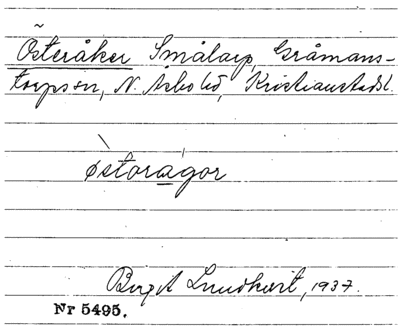 Österåker Smålarp, Gråmans-
torps sn, N. Åsbo hd, Kristianstads l.
östoragor
Birgit Lundkvist, 1937.
Nr 5495.